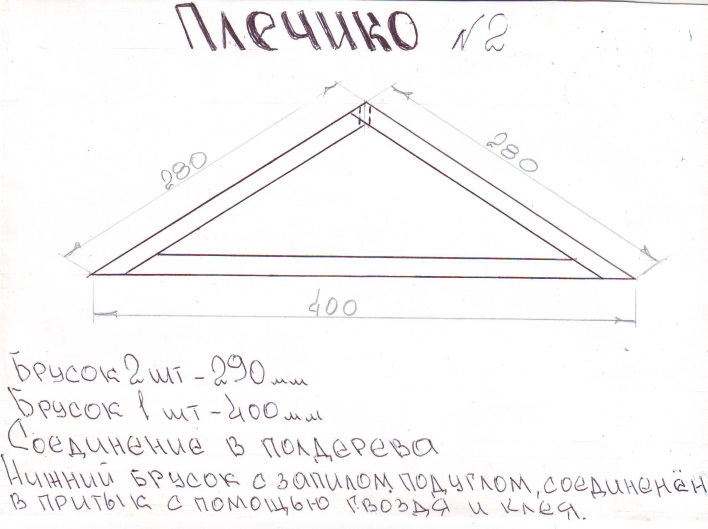 Плечико №2
280
280
400
Брусок 2 шт - 290 мм
Брусок 1 шт - 400 мм
Соединение в полдерева
Нижний брусок с запилом под углом, соединенён
в притык с помощью гвоздя и клея.